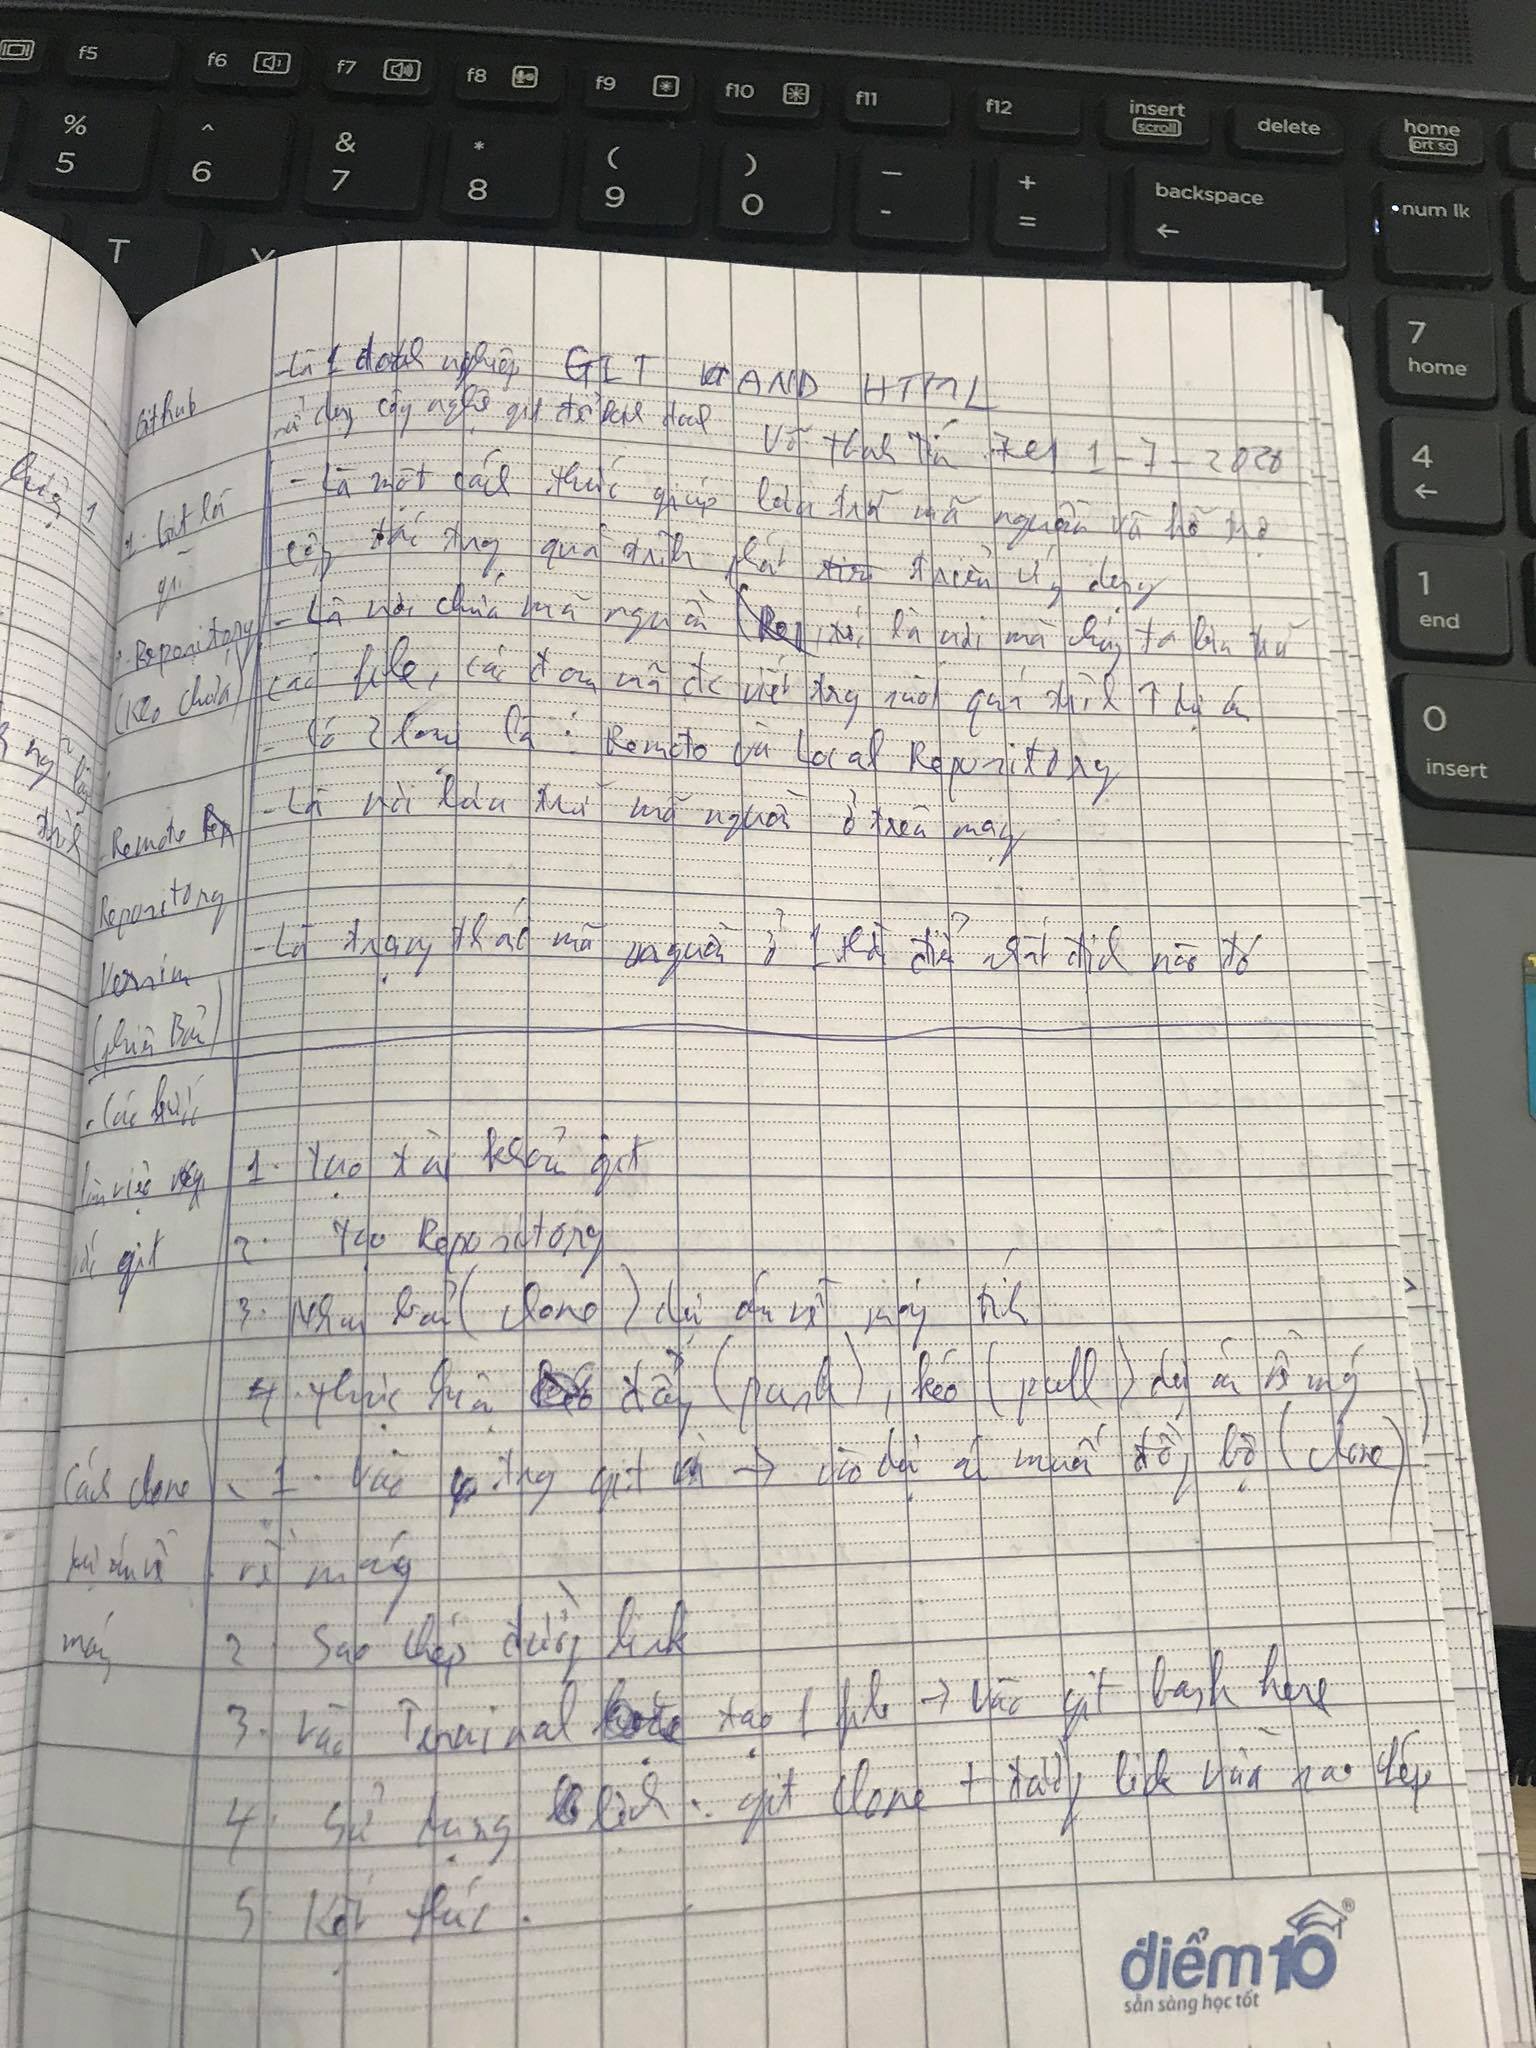 f5 f6 f7 f8 f9 f10 f11 f12 insert scroll delete home prt sc
% 5 ^ 6 & 7 * 8 ( 9 ) 0 — - + = backspace ← num lk
T Y 7 home
4 ←
1 end
0 insert
Github
- Là 1 doanh nghiệp GIT AND HTML
sử dụng công nghệ git để kinh doanh
Võ Thành 1-7-2020
Git là gì
- Là một cách thức giúp lưu trữ mã nguồn và hỗ trợ
cộng tác trong quá trình phát triển ứng dụng
Repository (Kho chứa)
- Là nơi chứa mã nguồn là nơi mà chúng ta lưu trữ
các file, các đoạn mã đc viết trong suốt quá trình dự án
- Có 2 loại là : Remote và Local Repository
Remote Repository
- Là nơi lưu trữ mã nguồn ở trên mạng
Version (phiên Bản)
- Là trạng thái mã nguồn ở 1 thời điểm nhất định nào đó
Các bước làm việc với git
1. Tạo tài khoản git
2. Tạo Repository
3. Nhân bản (clone) dự án về máy tính
4. Thực hiện đẩy (push), kéo (pull) dự án về máy
Cách clone dự án về máy
1. Vào trong git → vào dự án muốn đồng bộ (clone)
về máy
2. Sao chép đường link
3. Vào Terminal tạo 1 file → vào git bash here
4. Sử dụng lệnh : git clone + đường link vừa sao chép
5. Kết thúc.
điểm10®
sẵn sàng học tốt